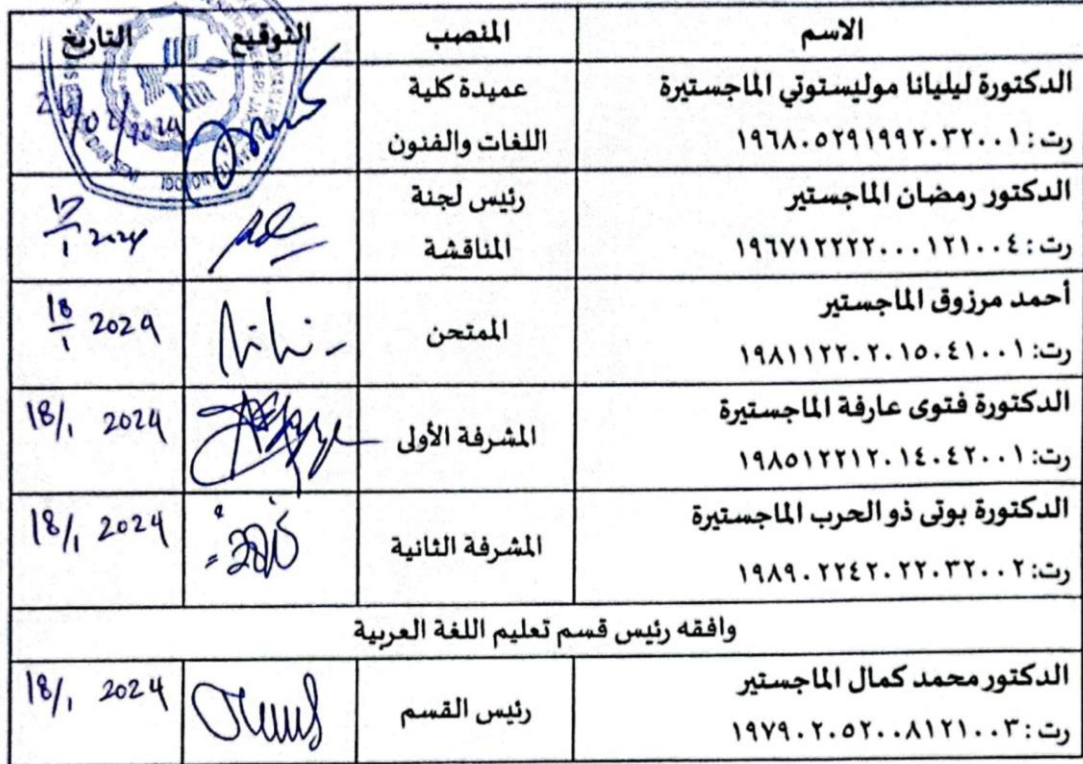 الاسم المنصب التوقيع التاريخ
الدكتورة ليليانا موليستوتي الماجستيرة عميدة كلية
رت: ١٩٦٨٠٥٢٩١٩٩٢٠٣٢٠٠١ اللغات والفنون
الدكتور رمضان الماجستير رئيس لجنة
رت: ١٩٦٧١٢٢٢٢٠٠٠١٢١٠٠٤ المناقشة 2024
أحمد مرزوق الماجستير
رت: ١٩٨١١٢٢٠٢٠١٥٠٤١٠٠١ الممتحن 18/1 2024
الدكتورة فتوى عارفة الماجستيرة
رت: ١٩٨٥١٢٢١٢٠١٤٠٤٢٠٠١ المشرفة الأولى 18/1 2024
الدكتورة بوتى ذو الحرب الماجستيرة
رت: ١٩٨٩٠٢٢٤٢٠٢٢٠٣٢٠٠٢ المشرفة الثانية 18/1 2024
وافقه رئيس قسم تعليم اللغة العربية
الدكتور محمد كمال الماجستير
رت: ١٩٧٩٠٢٠٥٢٠٠٨١٢١٠٠٣ رئيس القسم 18/1 2024